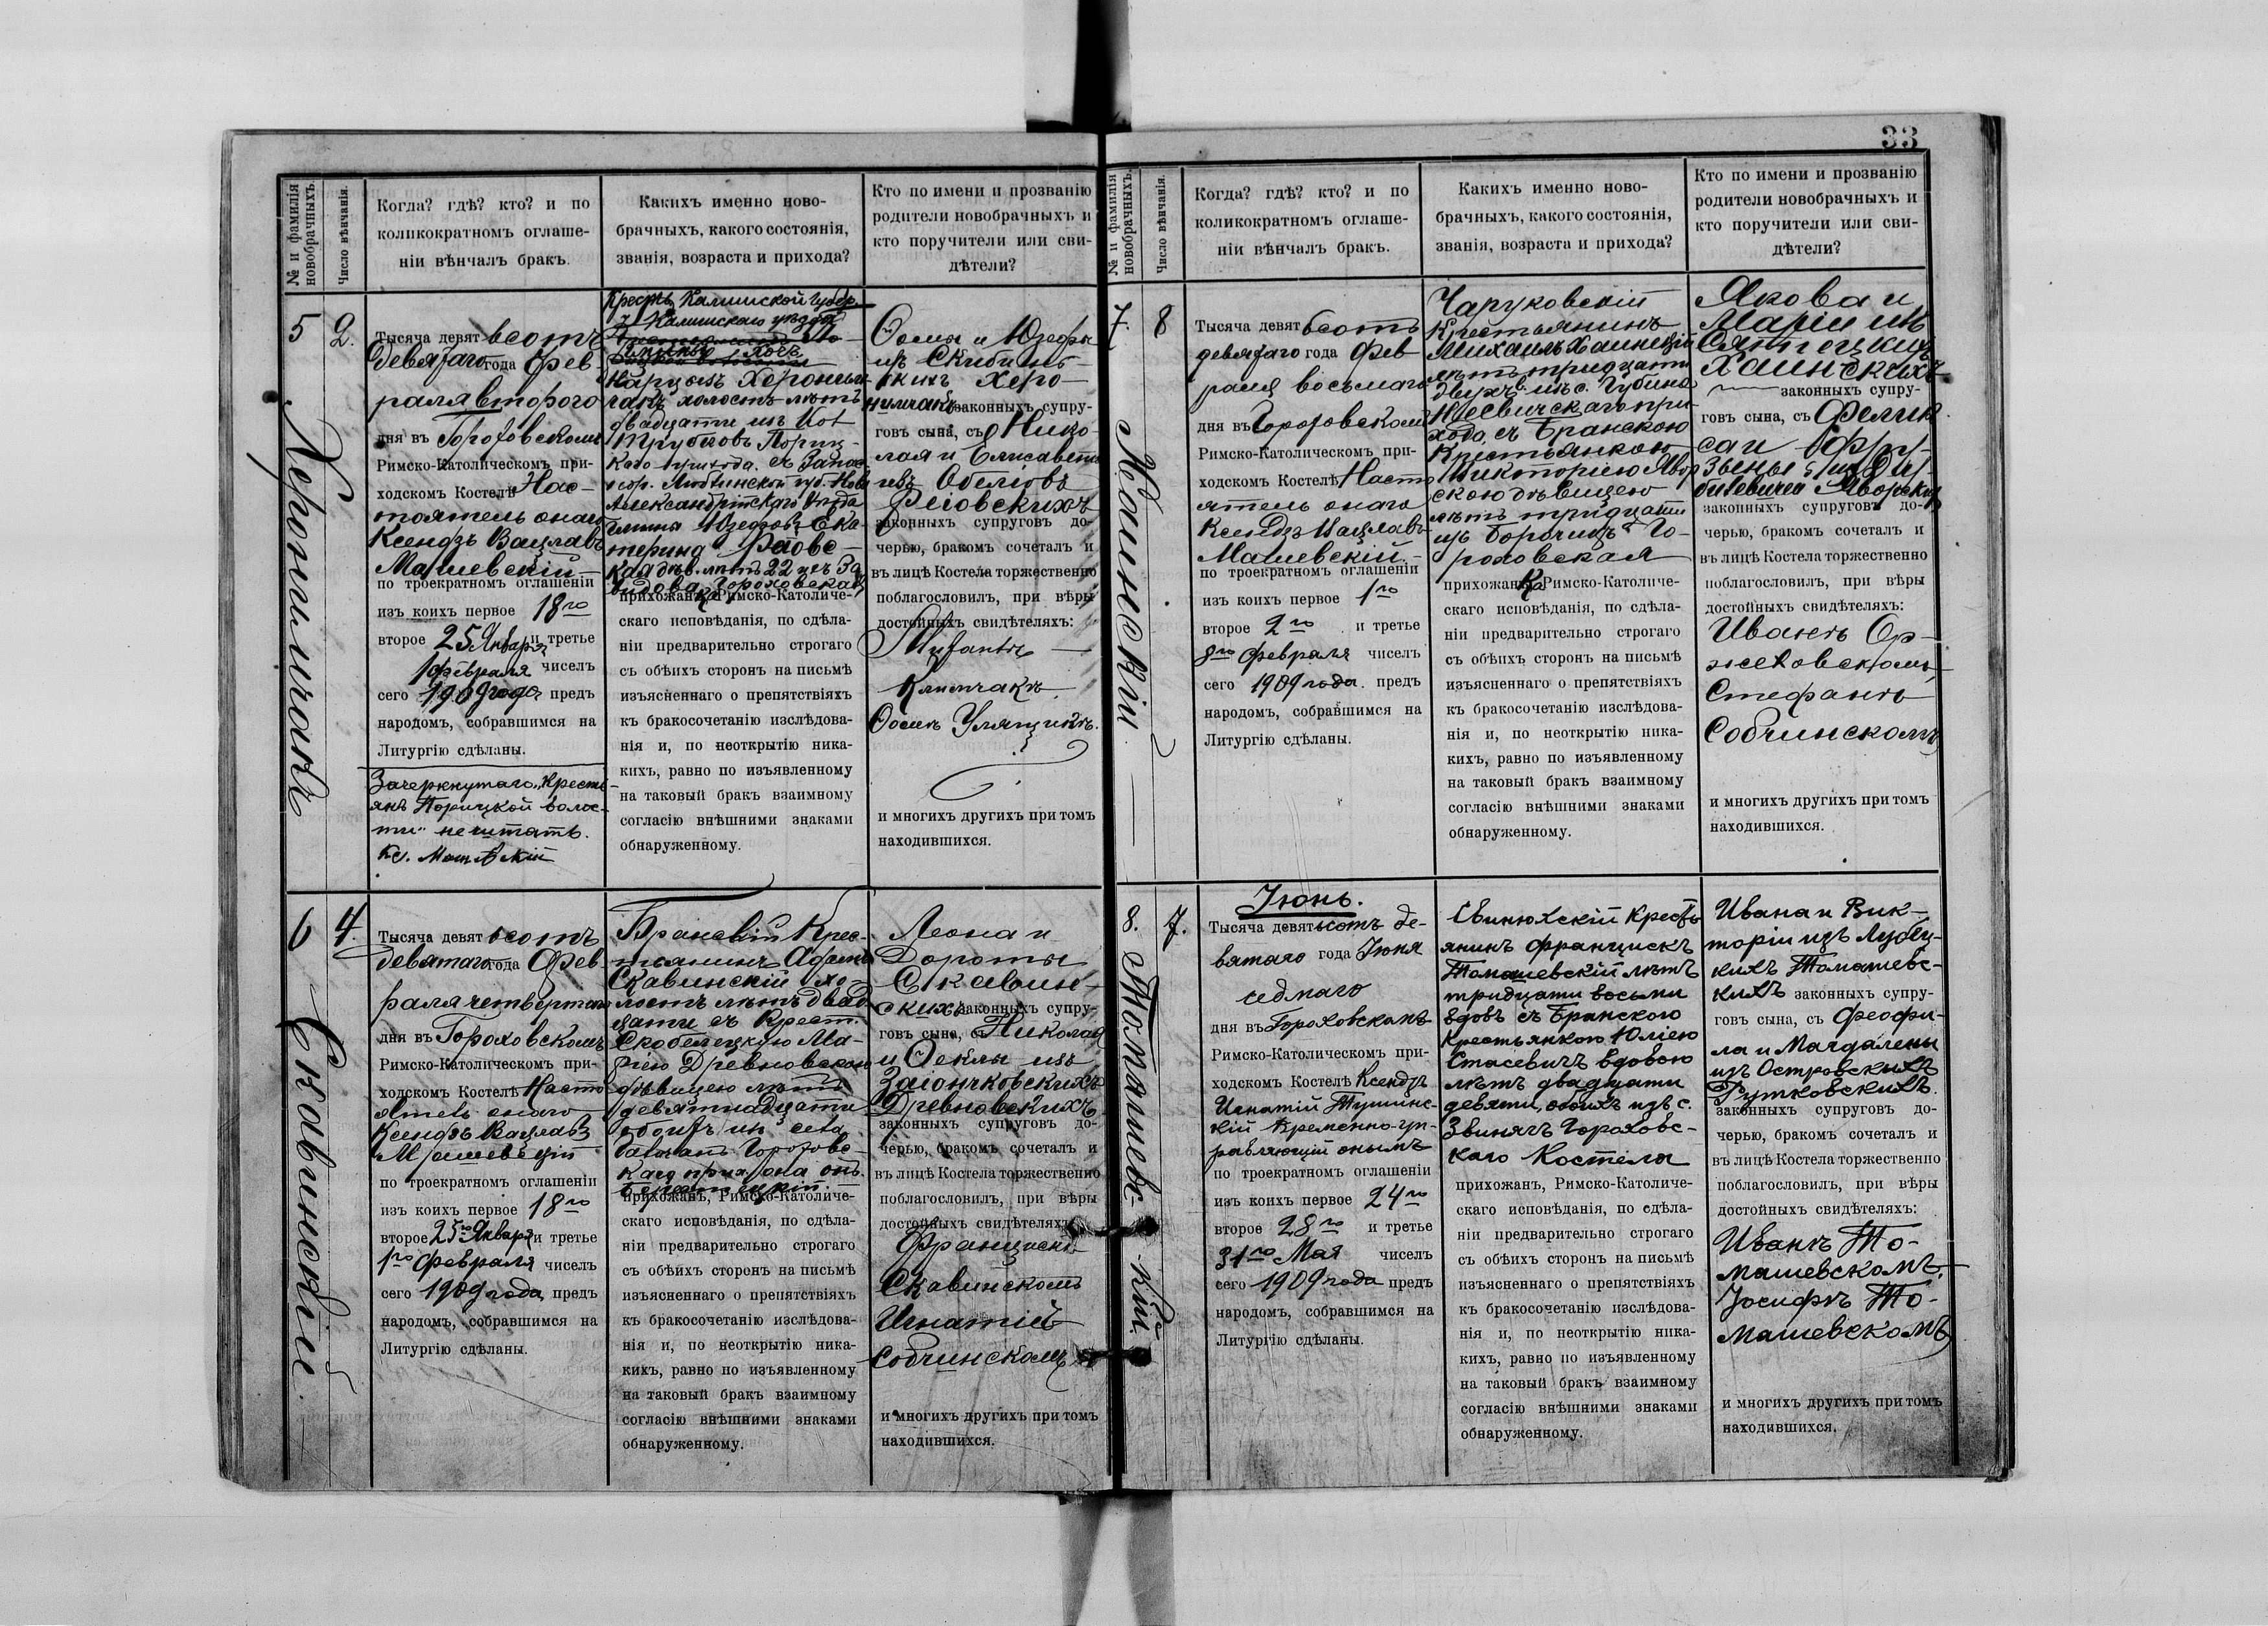 33
№ и фамилія новобрачныхъ.
Число вѣнчанія.
Когда? гдѣ? кто? и по
коликократномъ оглаше-
ніи вѣнчалъ бракъ.
Какихъ именно ново-
брачныхъ, какого состоянія,
званія, возраста и прихода?
Кто по имени и прозванію
родители новобрачныхъ и
кто поручители или сви-
дѣтели?
5
2.
Херонимчакъ
Тысяча девятьсотъ
девятаго года Фев-
раля второго
дня въ Гороховскомъ
Римско-Католическомъ при-
ходскомъ Костелѣ Нас-
тоятель онаго
Ксендзъ Вацлавъ
Машевскій
по троекратномъ оглашеніи
изъ коихъ первое 18го
второе 25 Января и третье
1 февраля чиселъ
сего 1909 года предъ
народомъ, собравшимся на
Литургію сдѣланы.
Зачеркнутаго „Кресть-
янъ Порицкой волос-
ти" не читать.
Кс. Машевскій
Крестъ. Калишской губер.
Калишскаго уѣзда
Херонъим-
чакъ холостъ лѣтъ
двадцати изъ
Пориц-
каго прихода съ
Люблинской губ. Ново
Александрійскаго уѣзда
гмины Юзефовъ Ека-
терина
дѣв. лѣтъ 22 изъ За-
видова Гороховская
прихожанка Римско-Католиче-
скаго исповѣданія, по сдѣла-
ніи предварительно строгаго
съ обѣихъ сторонъ на письмѣ
изъясненнаго о препятствіяхъ
къ бракосочетанію изслѣдова-
нія и, по неоткрытію ника-
кихъ, равно по изъявленному
на таковый бракъ взаимному
согласію внѣшними знаками
обнаруженному.
Ѳомы и Юзефы
изъ
Херо-
нимчаковъ законныхъ супру-
говъ сына, съ Нико-
лая и Елисаветы
изъ
законныхъ супруговъ до-
черью, бракомъ сочеталъ и
въ лицѣ Костела торжественно
поблагословилъ, при вѣры
достойныхъ свидѣтеляхъ:
Климчакъ
и многихъ другихъ при томъ
находившихся.
6
4.
Скавинскій.
Тысяча девятьсотъ
девятаго года Фев-
раля четвертаго
дня въ Гороховскомъ
Римско-Католическомъ при-
ходскомъ Костелѣ Насто
ятель онаго
Ксендзъ Вацлавъ
Машевскій
по троекратномъ оглашеніи
изъ коихъ первое 18го
второе 25го Января и третье
1го февраля чиселъ
сего 1909 года предъ
народомъ, собравшимся на
Литургію сдѣланы.
Бранскій Крес-
тьянинъ Адамъ
Скавинскій хо-
лостъ лѣтъ двад-
цати съ Крест.
Скобелецкую Ма-
рію Древновскою
дѣвицею лѣтъ
девятнадцати
обоихъ изъ села
Гороховс-
каго прих. она онъ
прихожанъ, Римско-Католиче-
скаго исповѣданія, по сдѣла-
ніи предварительно строгаго
съ обѣихъ сторонъ на письмѣ
изъясненнаго о препятствіяхъ
къ бракосочетанію изслѣдова-
нія и, по неоткрытію ника-
кихъ, равно по изъявленному
на таковый бракъ взаимному
согласію внѣшними знаками
обнаруженному.
Леона и
Дороты
Скавин-
скихъ законныхъ супру-
говъ сына, съ Николая
и Ѳеклы изъ
Заіончковскихъ
Древновскихъ
законныхъ супруговъ до-
черью, бракомъ сочеталъ и
въ лицѣ Костела торжественно
поблагословилъ, при вѣры
достойныхъ свидѣтеляхъ:
Францискѣ
Скавинскомъ
Игнатій
Собчинскомъ
и многихъ другихъ при томъ
находившихся.
№ и фамилія новобрачныхъ.
Число вѣнчанія.
Когда? гдѣ? кто? и по
коликократномъ оглаше-
ніи вѣнчалъ бракъ.
Какихъ именно ново-
брачныхъ, какого состоянія,
званія, возраста и прихода?
Кто по имени и прозванію
родители новобрачныхъ и
кто поручители или сви-
дѣтели?
7.
8
Хаинскій
Тысяча девятьсотъ
девятаго года Фев
раля восьмаго
дня въ Гороховскомъ
Римско-Католическомъ при-
ходскомъ Костелѣ Насто
ятель онаго
Ксендзъ Вацлавъ
Машевскій
по троекратномъ оглашеніи
изъ коихъ первое 1го
второе 2го и третье
8го февраля чиселъ
сего 1909 года предъ
народомъ, собравшимся на
Литургію сдѣланы.
Чаруковскій
Крестьянинъ
Михаилъ Хаинскій
лѣтъ тридцати
двухъ изъ с. Губина
при-
хода, съ Бранскою
Крестьянкою
Викторіею Явор
скою дѣвицею
лѣтъ тридцати
изъ Борочичъ Го-
роховская
прихожанка Римско-Католиче-
скаго исповѣданія, по сдѣла-
ніи предварительно строгаго
съ обѣихъ сторонъ на письмѣ
изъясненнаго о препятствіяхъ
къ бракосочетанію изслѣдова-
нія и, по неоткрытію ника-
кихъ, равно по изъявленному
на таковый бракъ взаимному
согласію внѣшними знаками
обнаруженному.
Якова и
Маріи изъ
Хаинскихъ
законныхъ супру-
говъ сына, съ Феликса и
Яворскихъ
законныхъ супруговъ до-
черью, бракомъ сочеталъ и
въ лицѣ Костела торжественно
поблагословилъ, при вѣры
достойныхъ свидѣтеляхъ:
Иванѣ Ор-
жеховскомъ,
Стефанѣ
Собчинскомъ
и многихъ другихъ при томъ
находившихся.
8.
7.
Томашевс-
кій.
Іюнь.
Тысяча девятьсотъ де-
вятаго года Іюня
седмаго
дня въ Гороховскомъ
Римско-Католическомъ при-
ходскомъ Костелѣ Ксендзъ
Игнатій Тушинс-
кій Временно-уп-
равляющій онымъ
по троекратномъ оглашеніи
изъ коихъ первое 24го
второе 28го и третье
31го Мая чиселъ
сего 1909 года предъ
народомъ, собравшимся на
Литургію сдѣланы.
Свинюхскій Кресть
янинъ Францискъ
Томашевскій лѣтъ
тридцати восьми
вдовъ съ Бранскою
Крестьянкою Юліею
Стасевичъ вдовою
лѣтъ двадцати
девяти, обоихъ изъ с.
Звинячъ Гороховс-
каго Костела
прихожанъ, Римско-Католиче-
скаго исповѣданія, по сдѣла-
ніи предварительно строгаго
съ обѣихъ сторонъ на письмѣ
изъясненнаго о препятствіяхъ
къ бракосочетанію изслѣдова-
нія и, по неоткрытію ника-
кихъ, равно по изъявленному
на таковый бракъ взаимному
согласію внѣшними знаками
обнаруженному.
Ивана и Вик-
торіи изъ Лубец-
кихъ Томашевс-
кихъ законныхъ супру-
говъ сына, съ Феофи-
ла и Магдалены
изъ Островскихъ
Рутковскихъ.
законныхъ супруговъ до-
черью, бракомъ сочеталъ и
въ лицѣ Костела торжественно
поблагословилъ, при вѣры
достойныхъ свидѣтеляхъ:
Иванѣ То-
машевскомъ,
Іосифѣ То-
машевскомъ
и многихъ другихъ при томъ
находившихся.